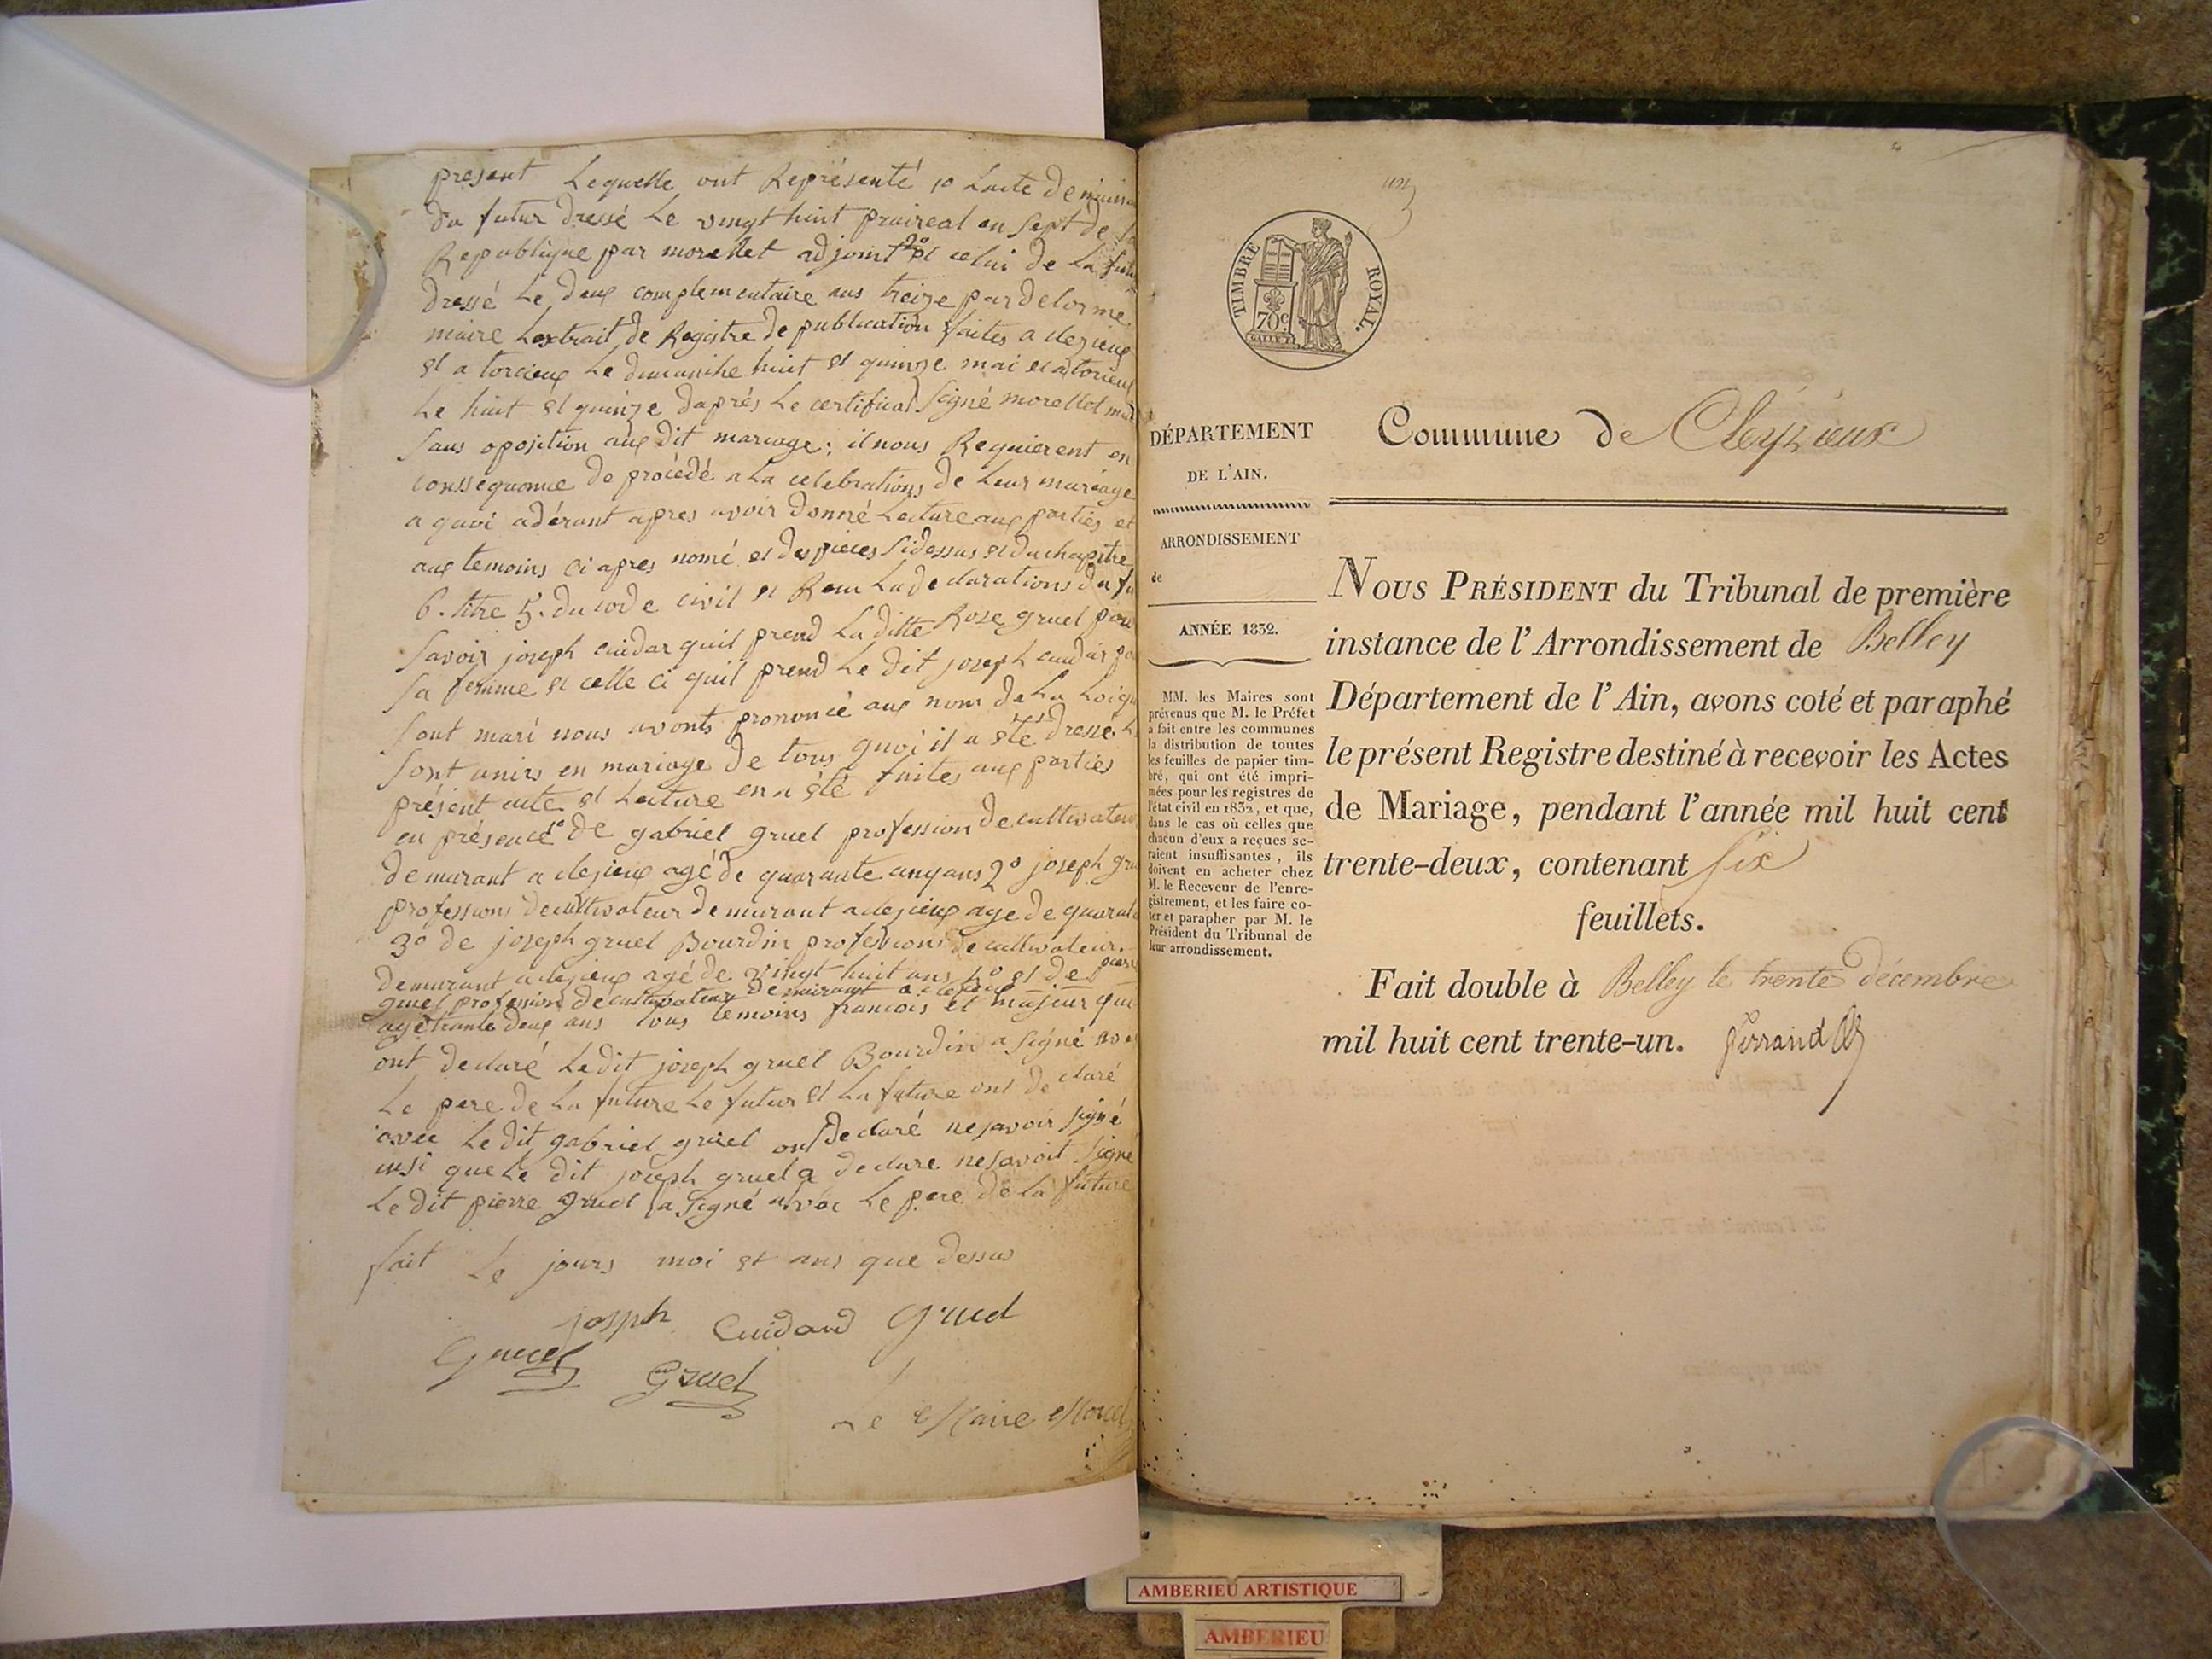 present Lequelle ont Représenté 1º Lacte de
du futur dressé Le vingt huit praireal an sept de
Republique par morellet adjoint 2º et celui de La
dressé Le deux complementaire ans treize par delorme
maire Lextrait de Registre de publication faites a clezieux
et a torcieux Le dimanche huit et quinze mai et a torcieu
Le huit et quinze daprés Le certificat signé morellet
sans oposition aux dit mariage; il nous Requierent en
conssequance de procédé a La celebrations de Leur mariage
a quoi adérant apres avoir donné Lecture aux parties et
aux temoins ci apres nomé et des pieces sidessus et du chapitre
6. titre 5. du code civil et Recu La declarations du
savoir joseph cuidar quil prend La ditte Rose gruel pour
sa femme et celle ci quil prend Le dit joseph cuidar
sont mari nous avonts prononcé aux nom de La Loi
sont unirs en mariage de tous quoi il a été dressé
présent acte et Lecture en a été faites aux parties
en présence 1º de gabriel gruel profession de cultivateur
demurant a clezieux agé de quarante ans 2º joseph
professions de cultivateur demurant a clezieux age de
3º de joseph gruel Bourdin professions de cultivateur
demurant a clezieux agé de vingt huit ans 4º et de pierre
gruel profession de cultivateur demurant a clezieux
age trante deux ans tous temoins francois et majeur qui
ont declaré Ledit joseph gruel Bourdin a signé
Le pere de La future Le futur et La future ont declaré
avec Le dit gabriel gruel ont declaré ne savoir signé
insi que Le dit joseph gruel a declare ne savoit signé
Le dit pierre gruel a signé avec Le pere de La future
fait Le jours moi et ans que dessus
joseph Cuidard Gruel
Gruel
Gruel
Le Maire
un
TIMBRE ROYAL.
70c.
GALLE F.
DÉPARTEMENT
DE L'AIN.
ARRONDISSEMENT
de
ANNÉE 1832.
MM. les Maires sont
prévenus que M. le Préfet
a fait entre les communes
la distribution de toutes
les feuilles de papier tim-
bré, qui ont été impri-
mées pour les registres de
l'état civil en 1832, et que,
dans le cas où celles que
chacun d'eux a reçues se-
raient insuffisantes, ils
doivent en acheter chez
M. le Receveur de l'enre-
gistrement, et les faire co-
ter et parapher par M. le
Président du Tribunal de
leur arrondissement.
Commune de Cleyzieux
NOUS PRÉSIDENT du Tribunal de première
instance de l'Arrondissement de Belley
Département de l'Ain, avons coté et paraphé
le présent Registre destiné à recevoir les Actes
de Mariage, pendant l'année mil huit cent
trente-deux, contenant six
feuillets.
Fait double à Belley le trente décembre
mil huit cent trente-un. Ferrand
AMBERIEU ARTISTIQUE
AMBERIEU